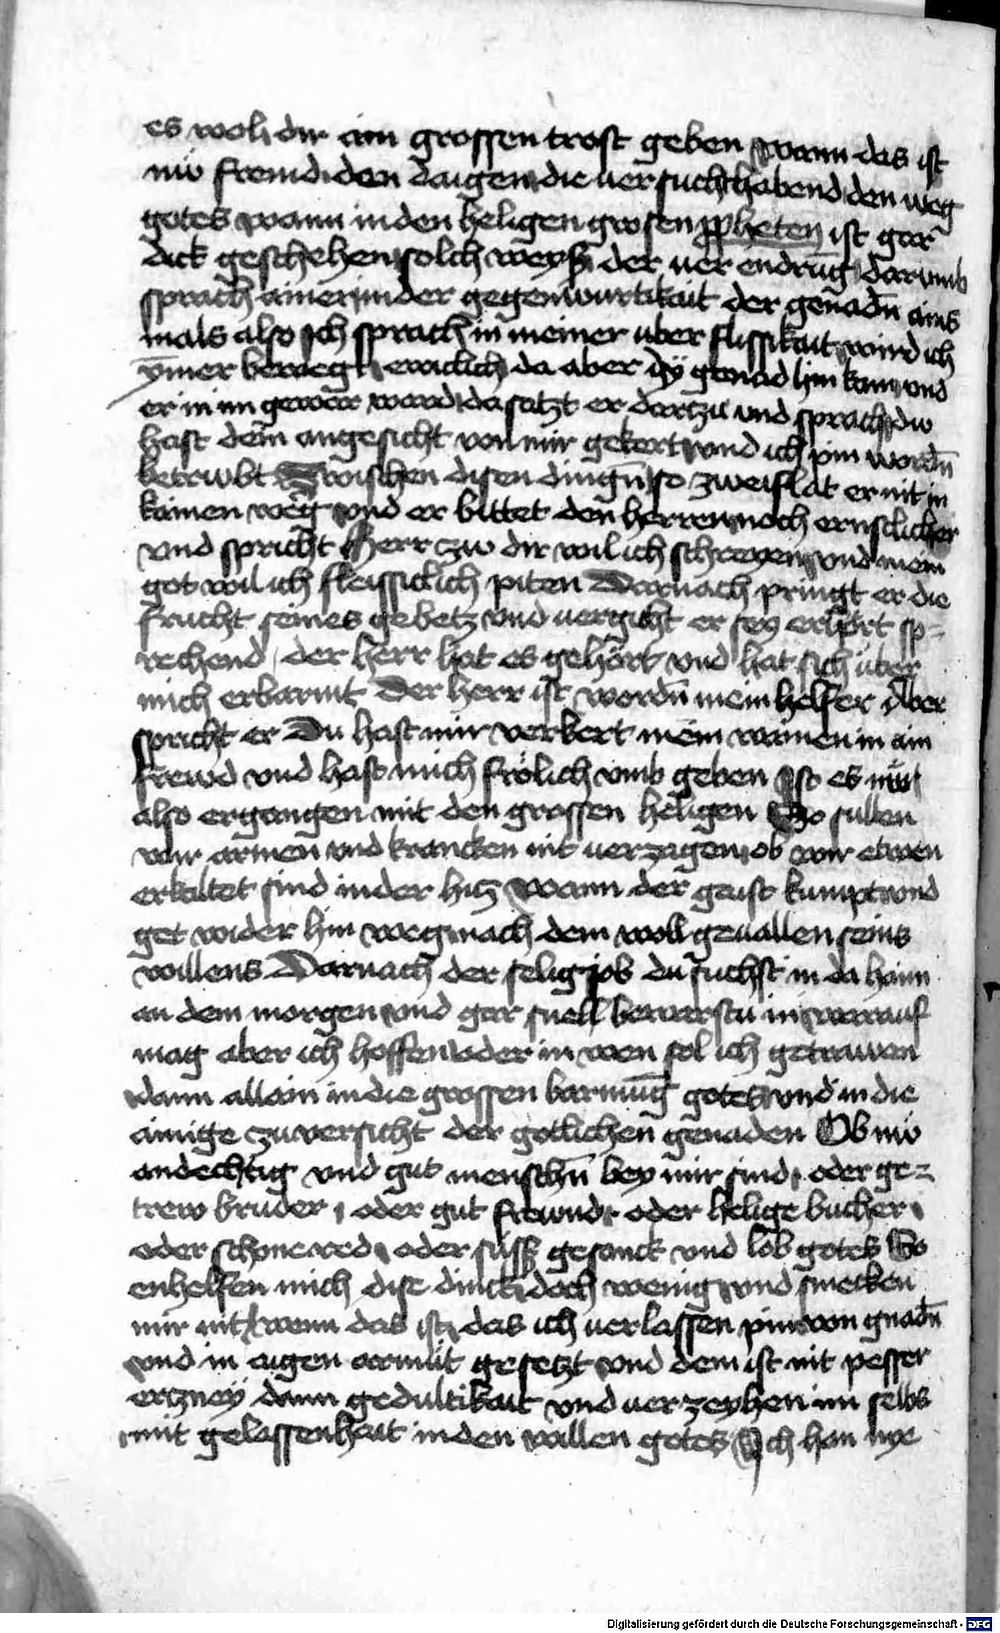 es woll dir ain grossen trost geben wann das ist
nit fremd den daigen die versucht habend den weg
gotes wann in den heligen grosen ppheten ist gar
dick geschehen solch weyß der verendrung darumb
sprach ainer in der gegenwurtikait der genadn ains
mals also Ich sprach in meiner uber flissikait wird ich
ymer bewegt ewiclich da aber dy genad hin kam vnd
er in im gewar ward da satzt er dartzu vnd sprach dw
hast dein angesicht von mir gekert vnd ich pin wordn
betrubt Zwischen disen dingn so zweiflat er nit in
kainen weg vnd er bittet den herren noch ernstlicher
vnd spricht Herr czw dir wil ich schreyen vnd mein
got wil ich fleissiclich piten Darnach pringt er die
frucht seines gebetz vnd vergicht er sey erhört sp=
rechend der herr hat es gehört vnd hat sich uber
mich erbarmt Der herr ist wordn mein helfer Aber
spricht er Du hast mir verkert mein wainen in ain
frewd vnd hast mich frölich vmb geben Ist es nw
also ergangen mit den grossen heligen So sullen
wir armen vnd krancken nit verzagen ob wir etwen
erkaltet sind in der hicz Wann der gaist kumpt vnd
get wider hin weg nach dem woll geuallen seins
willens Darnach der selig job du suchst in da haim
an dem morgen vnd gar snell bewerstu in warauf
mag aber ich hoffen oder in wen sol ich getrawen
dann allain in die grossen barmug gotes vnd in die
ainige zuversicht der gotlichen genaden Ob nw
andechtig vnd gut menschn bey mir sind oder ge=
trew bruder oder gut frewnd oder helige bucher
oder schone red oder süss gesanck vnd lob gotes So
enhelfen mich dise dinck doch wenig vnd smecken
mir nit wenn das ist das ich verlassen pin von gnadn
vnd in aigen armüt gesetzt vnd dem ist nit pesser
ertzney dann gedultikait vnd verzeyhen im selbs
mit gelassenhait in den willen gotes Ich han nye
Digitalisierung gefördert durch die Deutsche Forschungsgemeinschaft - DFG